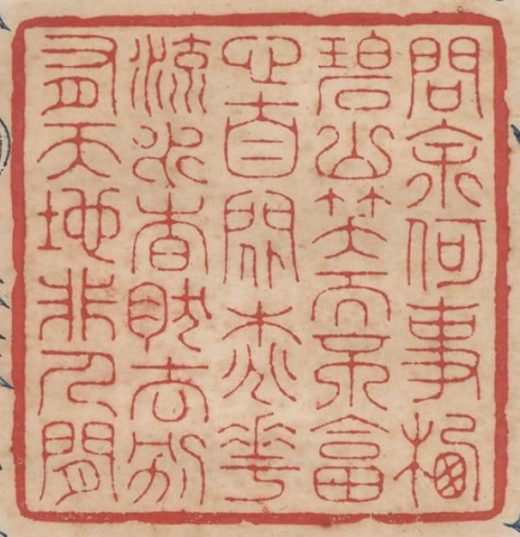 問余何事栖
碧山笑而不畣
心自閑桃花
流水杳然去別
有天地非人間